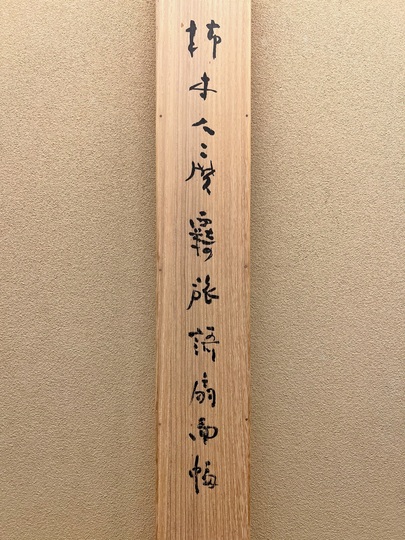 柿本人麿羈旅謌扇面幅